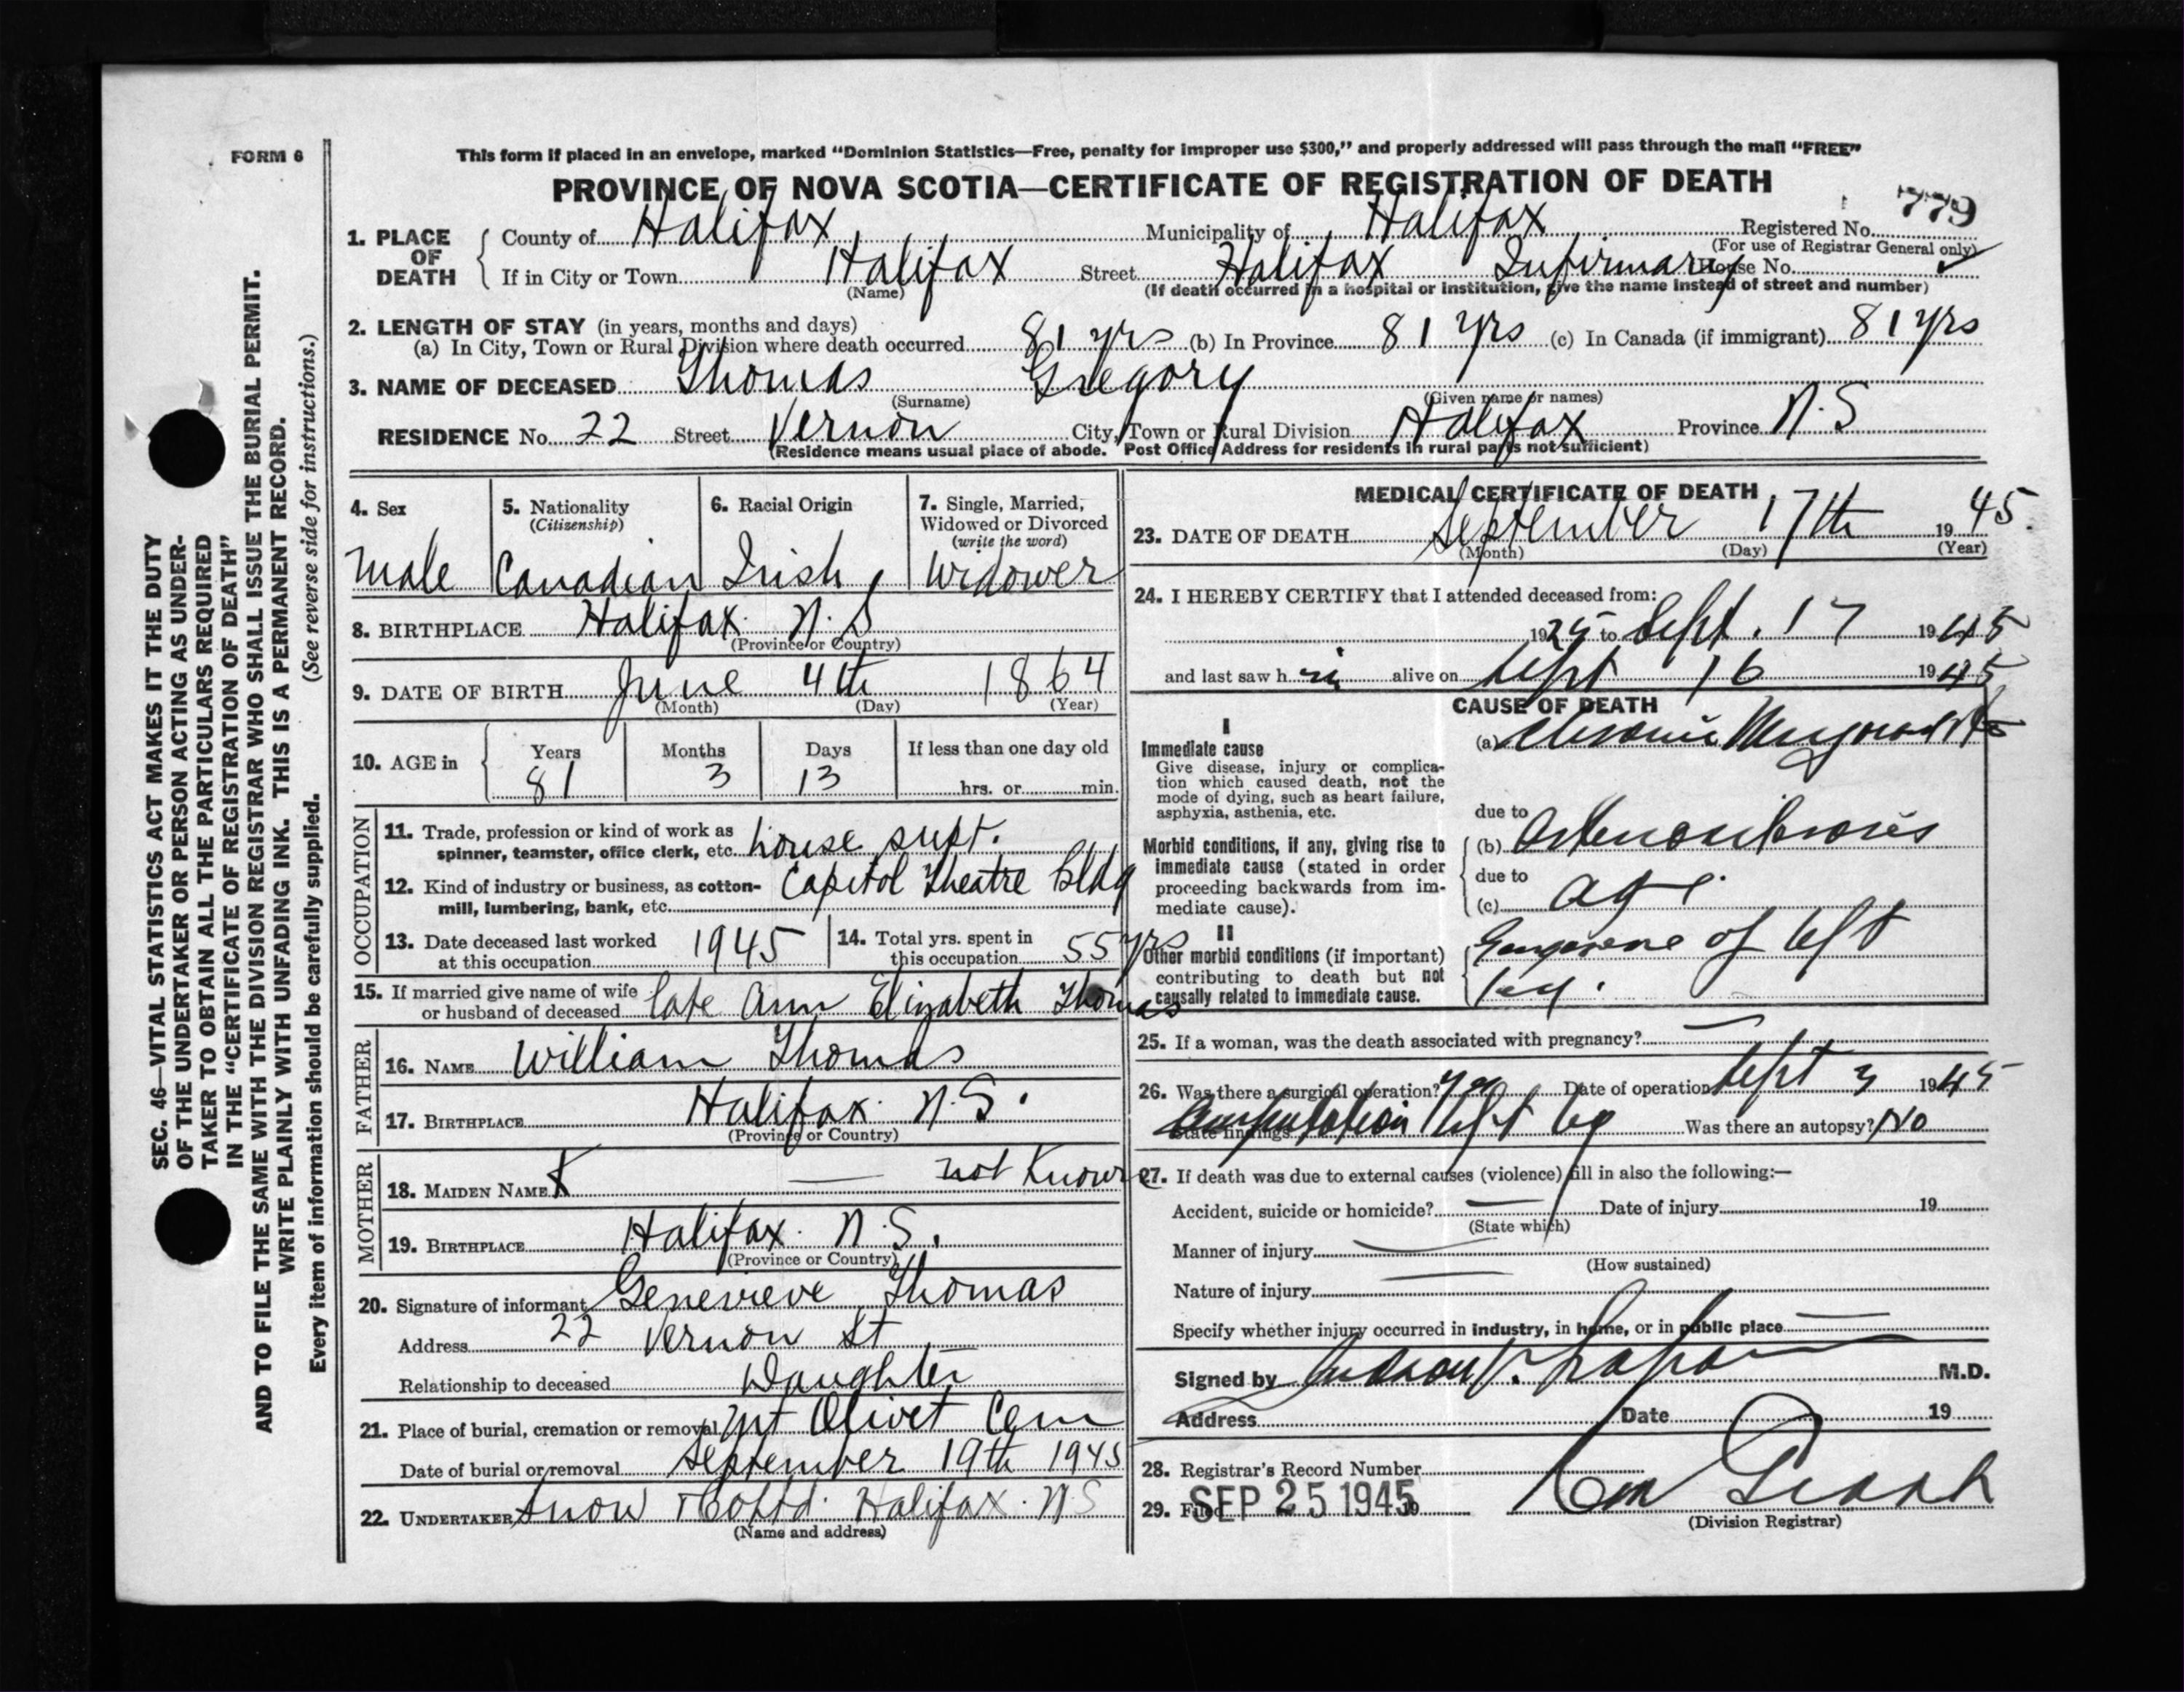 FORM 6
This form if placed in an envelope, marked "Dominion Statistics—Free, penalty for improper use $300," and properly addressed will pass through the mail "FREE"
PROVINCE OF NOVA SCOTIA—CERTIFICATE OF REGISTRATION OF DEATH
779
1. PLACE OF DEATH County of Halifax Municipality of Halifax Registered No.
(For use of Registrar General only)
If in City or Town Halifax Street Halifax Infirmary House No.
(Name) (If death occurred in a hospital or institution, give the name instead of street and number)
2. LENGTH OF STAY (in years, months and days)
(a) In City, Town or Rural Division where death occurred 81 yrs (b) In Province 81 yrs (c) In Canada (if immigrant) 81 yrs
3. NAME OF DECEASED Thomas Gregory
(Surname) (Given name or names)
RESIDENCE No. 22 Street Vernon City, Town or Rural Division Halifax Province N.S
(Residence means usual place of abode. Post Office Address for residents in rural parts not sufficient)
4. Sex 5. Nationality 6. Racial Origin 7. Single, Married,
(Citizenship) Widowed or Divorced
(write the word)
male Canadian Irish Widower
8. BIRTHPLACE Halifax N.S
(Province or Country)
9. DATE OF BIRTH June 4th 1864
(Month) (Day) (Year)
10. AGE in Years Months Days If less than one day old
81 3 13 hrs. or min.
OCCUPATION
11. Trade, profession or kind of work as
spinner, teamster, office clerk, etc. house supt.
12. Kind of industry or business, as cotton- Capitol Theatre Bldg
mill, lumbering, bank, etc.
13. Date deceased last worked 1945 14. Total yrs. spent in 55 yrs
at this occupation this occupation
15. If married give name of wife
or husband of deceased late Ann Elizabeth Thomas
FATHER
16. NAME William Thomas
17. BIRTHPLACE Halifax N.S.
(Province or Country)
MOTHER
18. MAIDEN NAME X — not Known
19. BIRTHPLACE Halifax N.S.
(Province or Country)
20. Signature of informant Genevieve Thomas
Address 22 Vernon St
Relationship to deceased Daughter
21. Place of burial, cremation or removal Mt Olivet Cem
Date of burial or removal September 19th 1945
22. UNDERTAKER Snow & Co Ltd. Halifax N S
(Name and address)
MEDICAL CERTIFICATE OF DEATH
23. DATE OF DEATH September 17th 1945.
(Month) (Day) (Year)
24. I HEREBY CERTIFY that I attended deceased from:
19 to Sept. 17 1945
and last saw h alive on Sept 16 1945
CAUSE OF DEATH
I
Immediate cause (a) Chronic
Give disease, injury or complica-
tion which caused death, not the
mode of dying, such as heart failure,
asphyxia, asthenia, etc. due to
Morbid conditions, if any, giving rise to (b) Arteriosclerosis
immediate cause (stated in order due to
proceeding backwards from im-
mediate cause). (c) age.
II
Other morbid conditions (if important) Gangrene of left
contributing to death but not leg.
causally related to immediate cause.
25. If a woman, was the death associated with pregnancy? —
26. Was there a surgical operation? Yes Date of operation Sept 3 1945
State findings Amputation left leg Was there an autopsy? No
27. If death was due to external causes (violence) fill in also the following:—
Accident, suicide or homicide? — Date of injury 19
(State which)
Manner of injury —
(How sustained)
Nature of injury —
Specify whether injury occurred in industry, in home, or in public place —
Signed by M.D.
Address Date 19
28. Registrar's Record Number
29. Filed SEP 25 1945 19
(Division Registrar)
SEC. 46—VITAL STATISTICS ACT MAKES IT THE DUTY
OF THE UNDERTAKER OR PERSON ACTING AS UNDER-
TAKER TO OBTAIN ALL THE PARTICULARS REQUIRED
IN THE "CERTIFICATE OF REGISTRATION OF DEATH"
AND TO FILE THE SAME WITH THE DIVISION REGISTRAR WHO SHALL ISSUE THE BURIAL PERMIT.
WRITE PLAINLY WITH UNFADING INK. THIS IS A PERMANENT RECORD.
Every item of information should be carefully supplied. (See reverse side for instructions.)